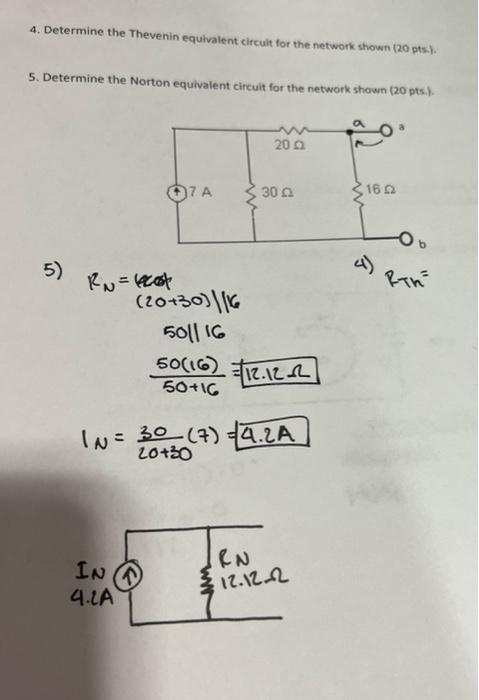 4. Determine the Thevenin equivalent circuit for the network shown (20 pts.).
5. Determine the Norton equivalent circuit for the network shown (20 pts.).
a
a
20 Ω
7 A
30 Ω
16 Ω
b
5)
4)
RN =
RTh =
(20+30)//16
50//16
50(16)
50+16
= 12.12 Ω
IN = 30 (7) = 4.2A
20+30
IN
4.2A
RN
12.12 Ω